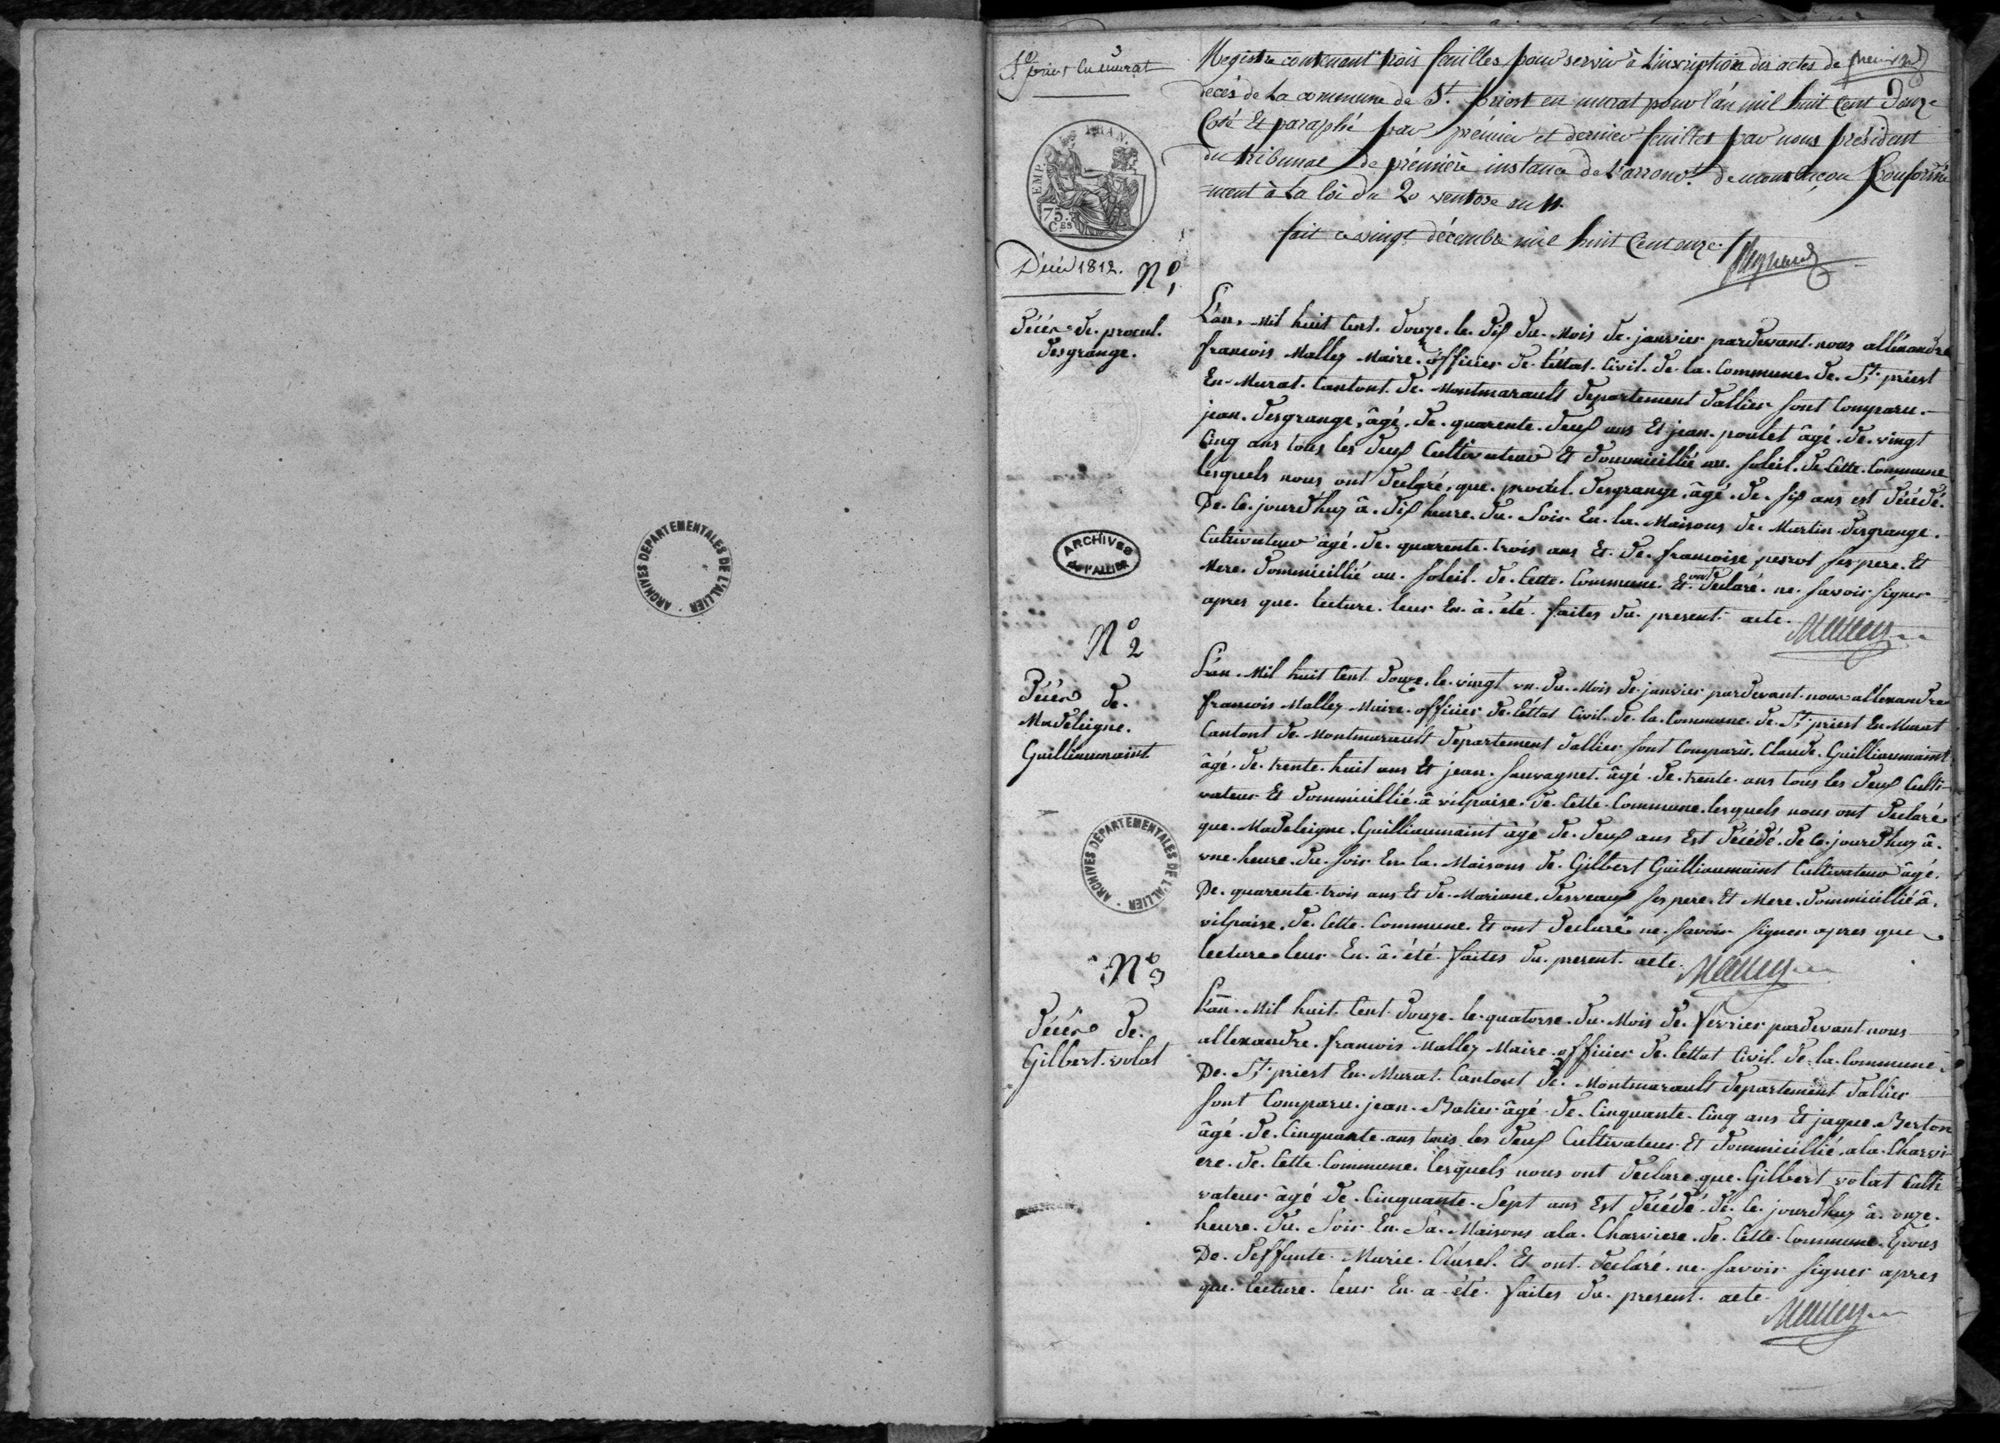 ARCHIVES DEPARTEMENTALES DE L'ALLIER
St priest en murat
EMP. FRAN.
75.
CES
Décès 1812.
Registre contenant trois feuilles pour servir à l'inscription des actes de
décès de la commune de St. priest en murat pour l'an mil huit Cent Douze
Coté Et paraphé par prémier et dernier feuillet par nous président
du tribunal de première instance de l'arrondt. de montluçon Conformé
=ment à la loi du 20 ventose an 11.
fait ce vingt décembre mil huit Cent onze.
No 1
décès de procul.
desgrange.
L'an. Mil huit Cent. douze. le dix du. Mois de. janvier pardevant. nous allexandre
francois Mallez Maire. officier de l'éttat. Civil. de la. Commune. de. St. priest
En. Murat. Cantont. de. Montmarault departement dallier sont Comparu.
jean. desgrange, âgé. de. quarente. deux ans Et jean. poulet âgé. de. vingt
Cinq ans tous les deux Cultivateur Et dommicillié au. soleil. de Cette. Commune
lesquels nous ont declaré, que. procul. desgrange. âgé. de. six ans est décédé.
De. Ce. jourdhuy â. dix heure. du. soir En. la. Maisons de. Martin desgrange.
Cultivateur âgé. de. quarente. trois ans Et. de. francoise perrot ses pere. Et
Mere. dommicillié au. soleil. de. Cette. Commune. Et ont declaré. ne. savoir signer
apres que. lecture. leur En. â. été. faites du. present. acte.
ARCHIVES
DE L'ALLIER
No 2
Décès de.
Madeleigne.
Guilliaumaint
L'an. Mil huit Cent douze. le. vingt un. du. Mois de. janvier pardevant. nous allexandre
francois Mallez Maire. officier de. l'éttat Civil. de. la. Commune. de. St. priest En. Murat
Cantont de. Montmarault departement dallier sont Comparu. Claude. Guilliaumaint
âgé. de. trente. huit ans Et jean. sauvagnet. âgé. de. trente. ans tous les deux Culti-
vateur Et dommicillié. â vilpaise. de. Cette. Commune. lesquels nous ont declaré
que. Madeleigne. Guilliaumaint âgé de. deux ans Est décédé. de Ce. jourdhuy â.
une. heure. du. soir En. la. Maisons de. Gilbert Guilliaumaint Cultivateur âgé.
De. quarente. trois ans Et de. Mariane. desveaux ses pere. Et Mere. dommicillié. â.
vilpaise. de. Cette. Commune. Et ont declaré. ne. savoir signer apres que
lecture. leur En. â. été. faites du. present. acte.
ARCHIVES DEPARTEMENTALES DE L'ALLIER
No 3
décès de.
Gilbert. volat
L'an. Mil huit. Cent. douze. le. quatorse. du. Mois de. fevrier pardevant. nous
allexandre. francois Mallez Maire. officier de. l'éttat Civil. de. la. Commune.
De. St. priest En. Murat. Cantont de. Montmarault departement dallier
sont Comparu. jean. Batier âgé. de. Cinquante. Cinq ans Et jaque. Berton
âgé. de. Cinquante. ans tous les deux Cultivateur Et dommicillié. a la. Charvi
ere. de. Cette. Commune. lesquels nous ont declare. que. Gilbert volat Culti
vateur âgé de. Cinquante. Sept ans Est décédé. de. Ce. jourdhuy â. onze.
heure. du. Soir. En. Sa. Maisons a la. Charviere. de. Cette. Commune. Epous
De. deffunte. Marie. Et. ont. declaré. ne. savoir signer apres
que. lecture. leur En. a. été. faites du. present. acte.